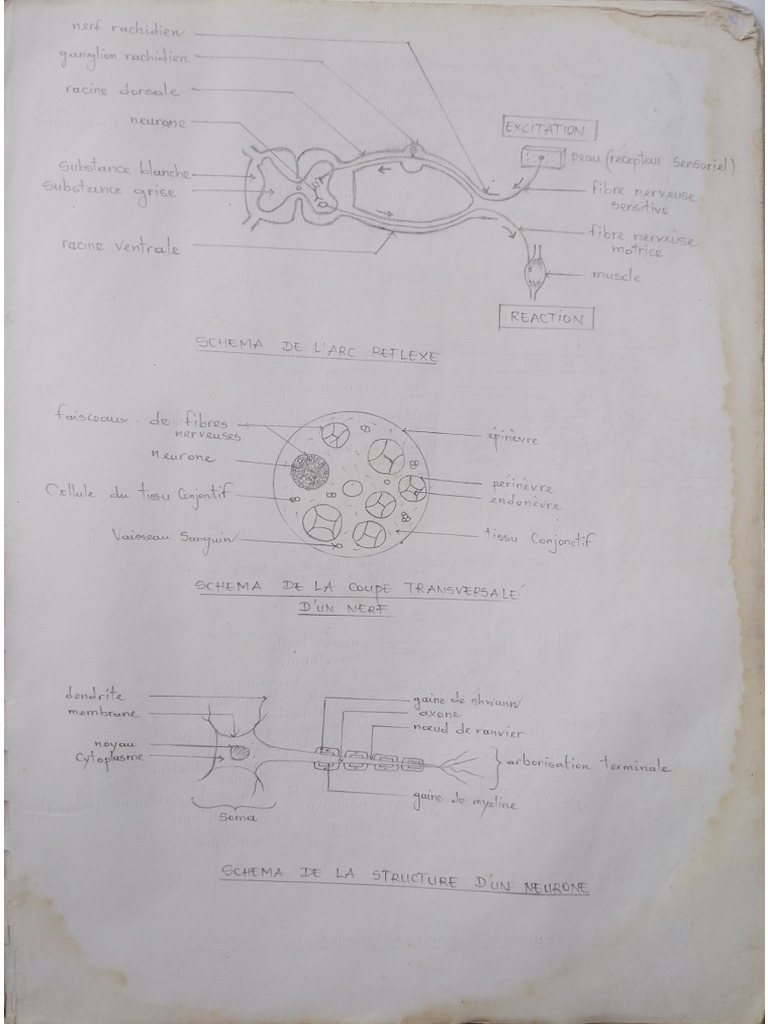 nerf rachidien
ganglion rachidien
racine dorsale
neurone
substance blanche
substance grise
racine ventrale
EXCITATION
peau (recepteur sensoriel)
fibre nerveuse
sensitive
fibre nerveuse
motrice
muscle
REACTION
SCHEMA DE L'ARC REFLEXE
faisceaux de fibres
nerveuses
neurone
Cellule du tissu Conjontif
Vaisseau Sanguin
épinèvre
périnèvre
endonèvre
tissu Conjonctif
SCHEMA DE LA COUPE TRANSVERSALE
D'UN NERF
dendrite
membrane
noyau
cytoplasme
Soma
gaine de shwann
axone
nœud de ranvier
arborisation terminale
gaine de myeline
SCHEMA DE LA STRUCTURE D'UN NEURONE